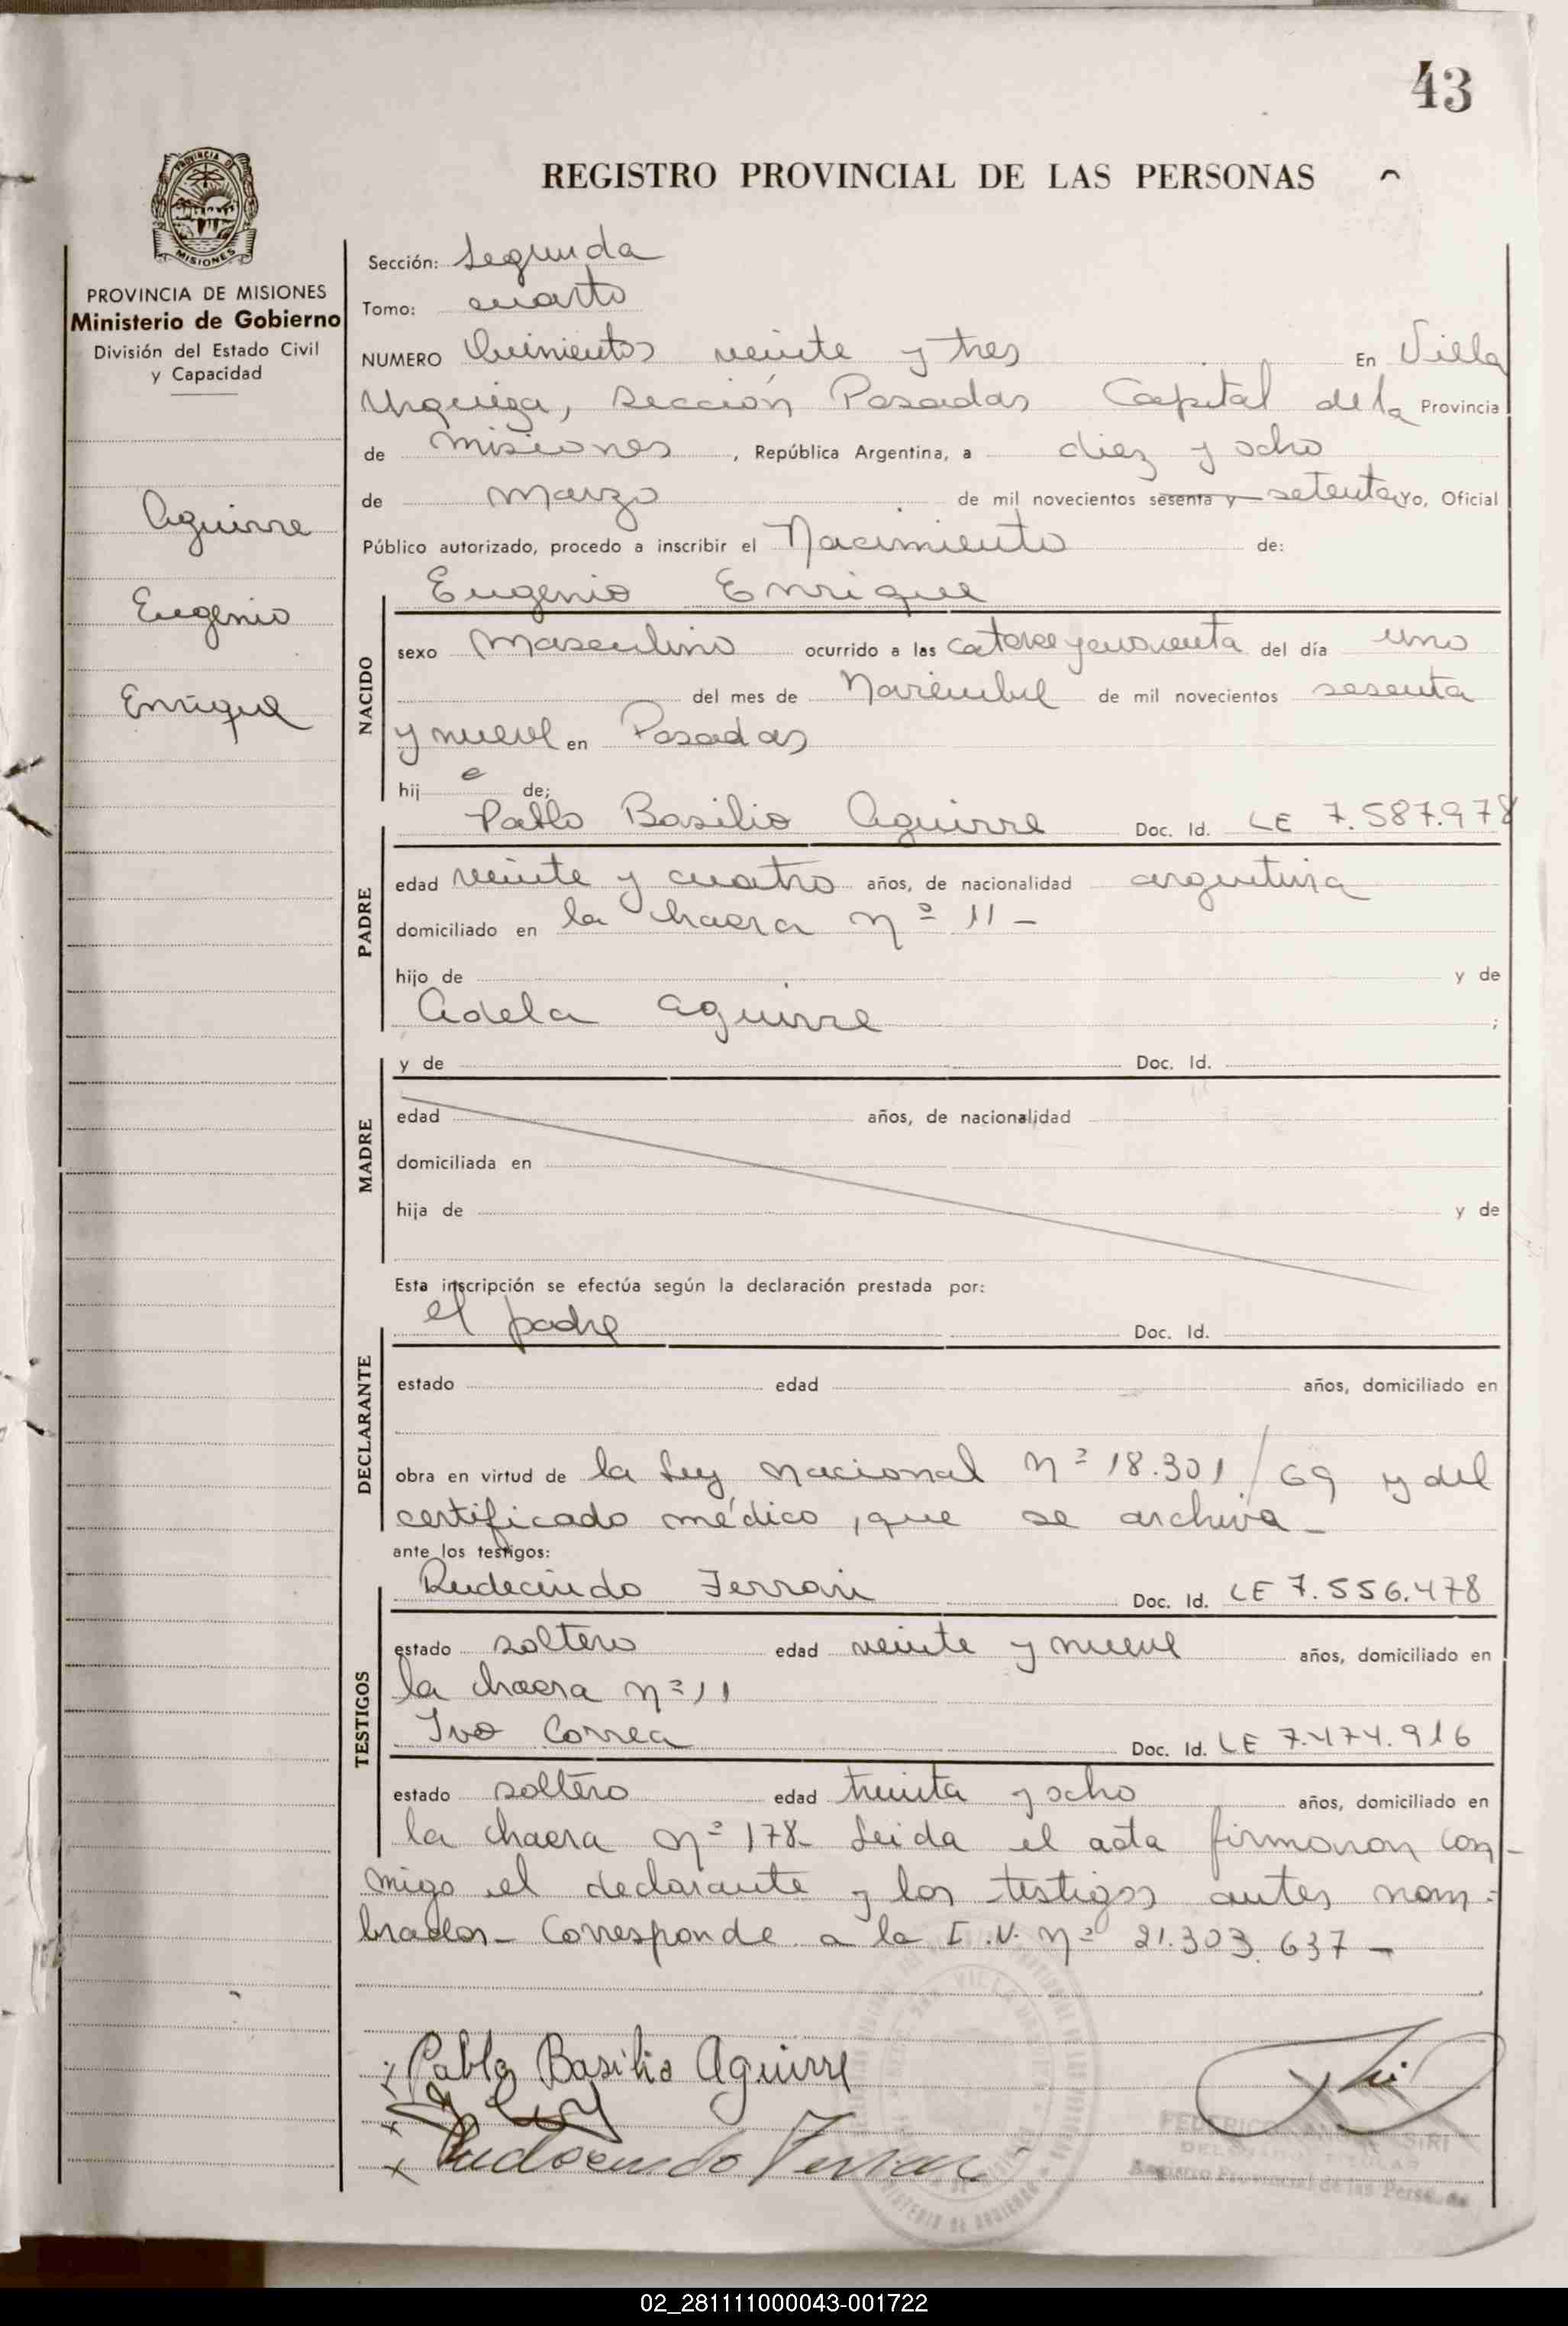 43
REGISTRO PROVINCIAL DE LAS PERSONAS
PROVINCIA DE
MISIONES
PROVINCIA DE MISIONES
Ministerio de Gobierno
División del Estado Civil
y Capacidad
Aguirre
Eugenio
Enrique
Sección: Segunda
Tomo: cuarto
NUMERO Quinientos veinte y tres En Villa
Urquiza, sección Posadas Capital de la Provincia
de Misiones, República Argentina, a diez y ocho
de Marzo de mil novecientos sesenta y setenta, Yo, Oficial
Público autorizado, procedo a inscribir el Nacimiento de:
NACIDO
Eugenio Enrique
sexo Masculino ocurrido a las catorce y cuarenta del día uno
del mes de Noviembre de mil novecientos sesenta
y nueve en Posadas
hij o de;
PADRE
Pablo Basilio Aguirre Doc. Id. LE 7.587.978
edad veinte y cuatro años, de nacionalidad argentina
domiciliado en la chacra nº 11 -
hijo de y de
Adela Aguirre ;
MADRE
y de Doc. Id.
edad años, de nacionalidad
domiciliada en
hija de y de
Esta inscripción se efectúa según la declaración prestada por:
DECLARANTE
el padre Doc. Id.
estado edad años, domiciliado en
obra en virtud de la Ley Nacional nº 18.301/69 y del
certificado médico, que se archiva -
ante los testigos:
TESTIGOS
Rudecindo Ferrari Doc. Id. LE 7.556.478
estado soltero edad veinte y nueve años, domiciliado en
la chacra nº 11
Ivo Correa Doc. Id. LE 7.474.916
estado soltero edad treinta y ocho años, domiciliado en
la chacra nº 178- Leida el acta firmaron con-
migo el declarante y los testigos antes nom-
brados- Corresponde a la I.N. nº 21.303.637 -
Pablo Basilio Aguirre
Rudecindo Ferrari
FEDERICO SIRI
TITULAR
Registro Provincial de las Personas
02_281111000043-001722